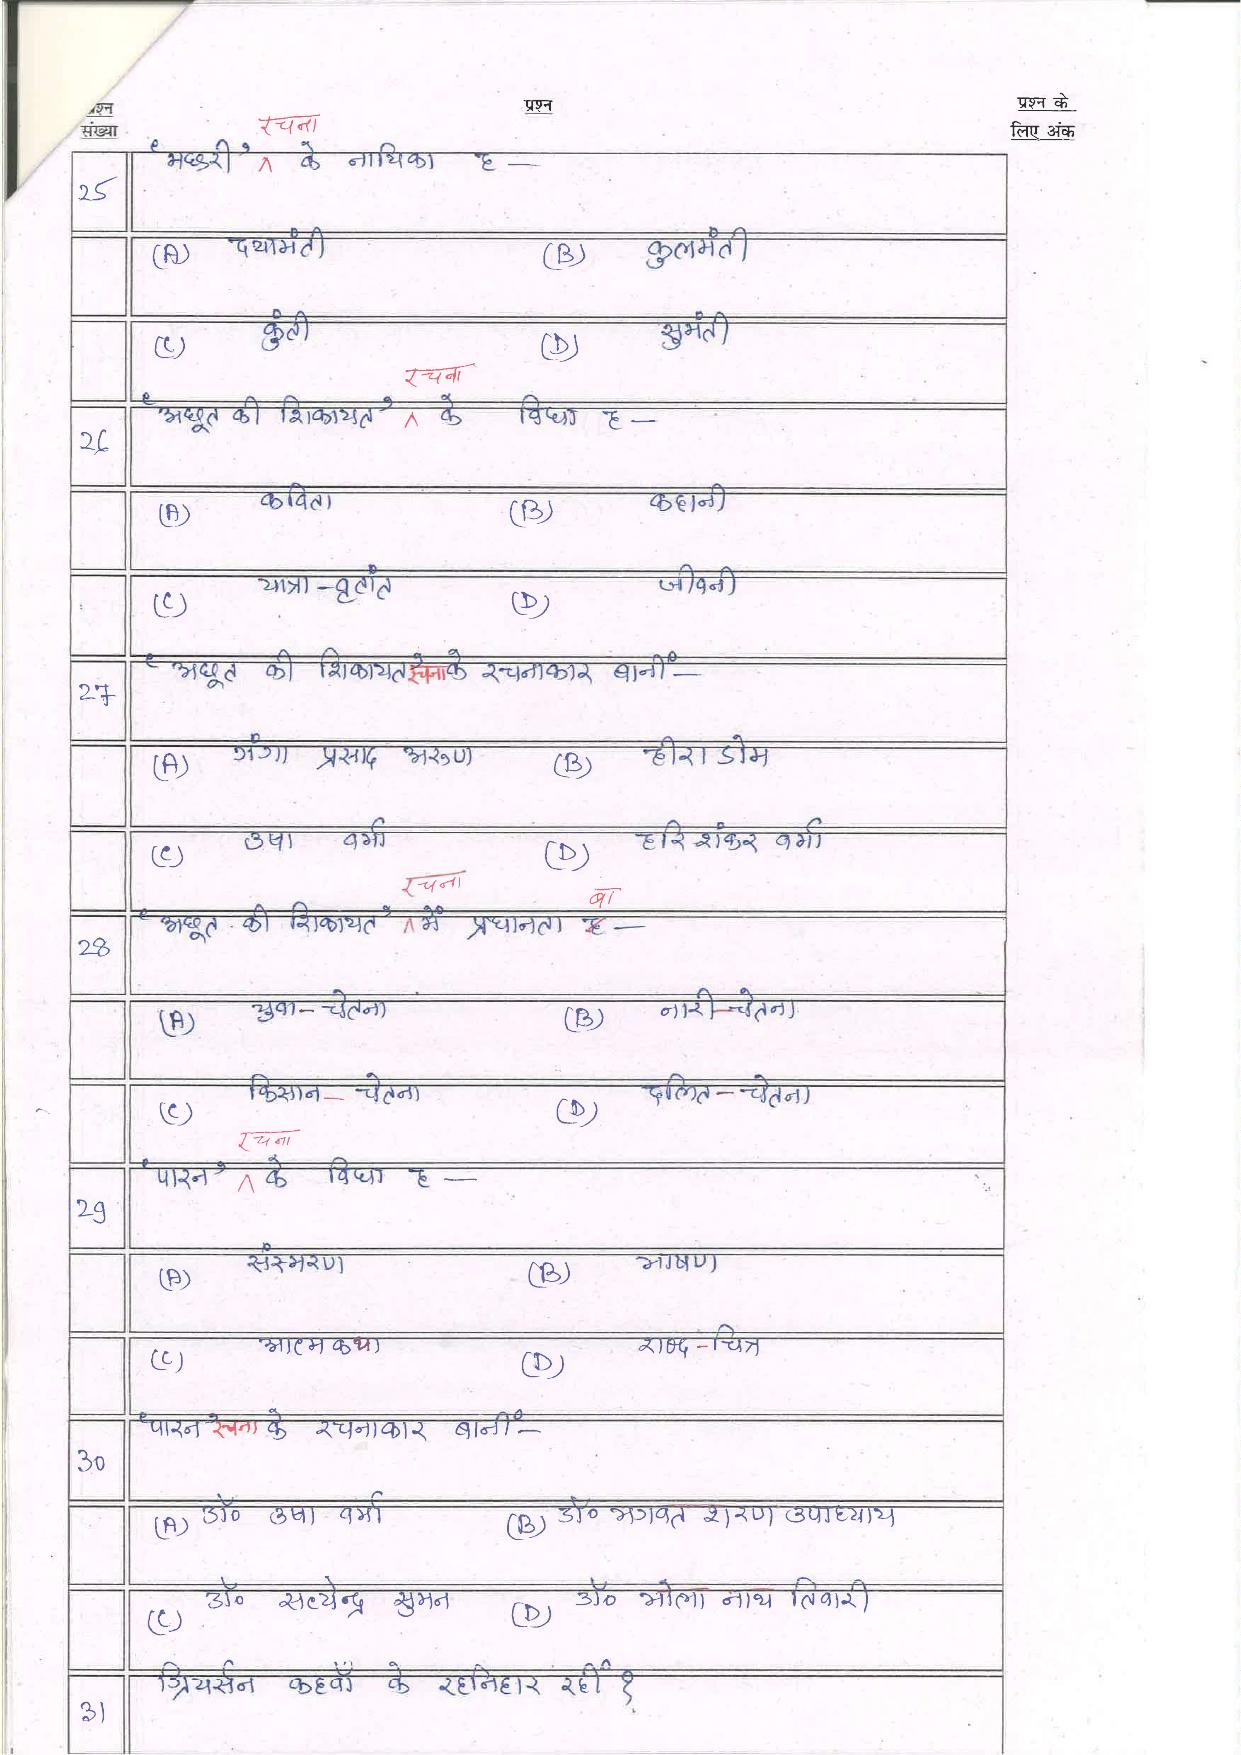 प्रश्न प्रश्न प्रश्न के
संख्या लिए अंक
रचना
25 'मछरी' ^ के नायिका ह —
(A) दयामंती (B) कुलमंती
(C) कुंती (D) सुमंती
रचना
26 'अछूत की शिकायत' ^ के विधा ह —
(A) कविता (B) कहानी
(C) यात्रा-वृतांत (D) जीवनी
27 'अछूत की शिकायत रचना के रचनाकार बानीं —
(A) गंगा प्रसाद अरुण (B) हीरा डोम
(C) उषा वर्मा (D) हरिशंकर वर्मा
रचना बा
28 'अछूत की शिकायत' ^ में प्रधानता ह —
(A) युवा-चेतना (B) नारी-चेतना
(C) किसान-चेतना (D) दलित-चेतना
रचना
29 'पारन' ^ के विधा ह —
(A) संस्मरण (B) भाषण
(C) आत्मकथा (D) शब्द-चित्र
30 'पारन' रचना के रचनाकार बानीं —
(A) डॉ० उषा वर्मा (B) डॉ० भगवत शरण उपाध्याय
(C) डॉ० सत्येन्द्र सुमन (D) डॉ० भोला नाथ तिवारी
31 ग्रियर्सन कहवाँ के रहनिहार रहीं ?